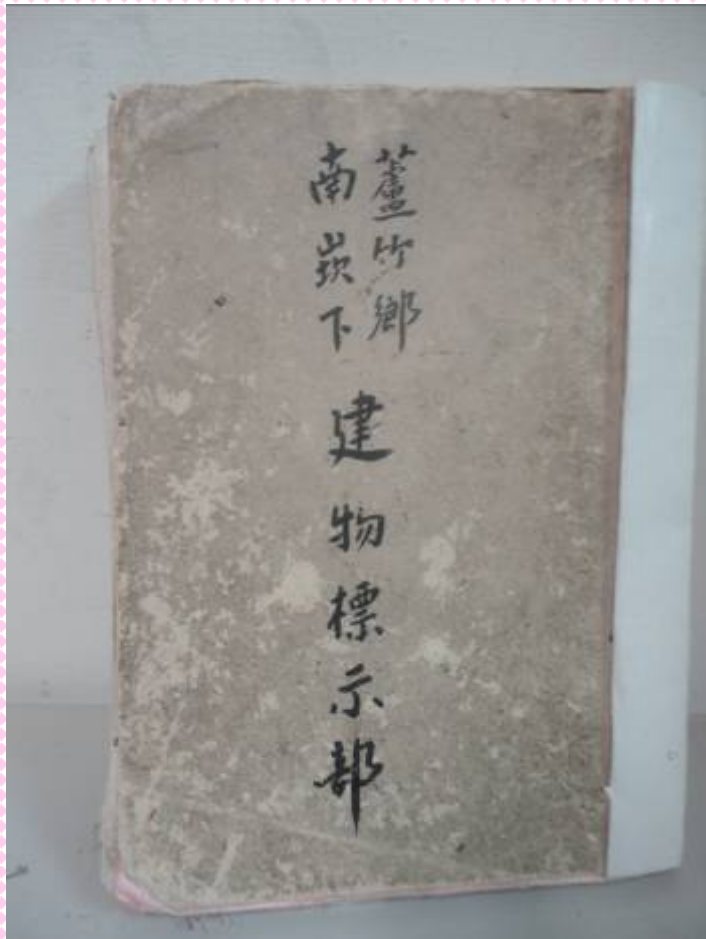 蘆竹鄉
南崁下
建物標示部